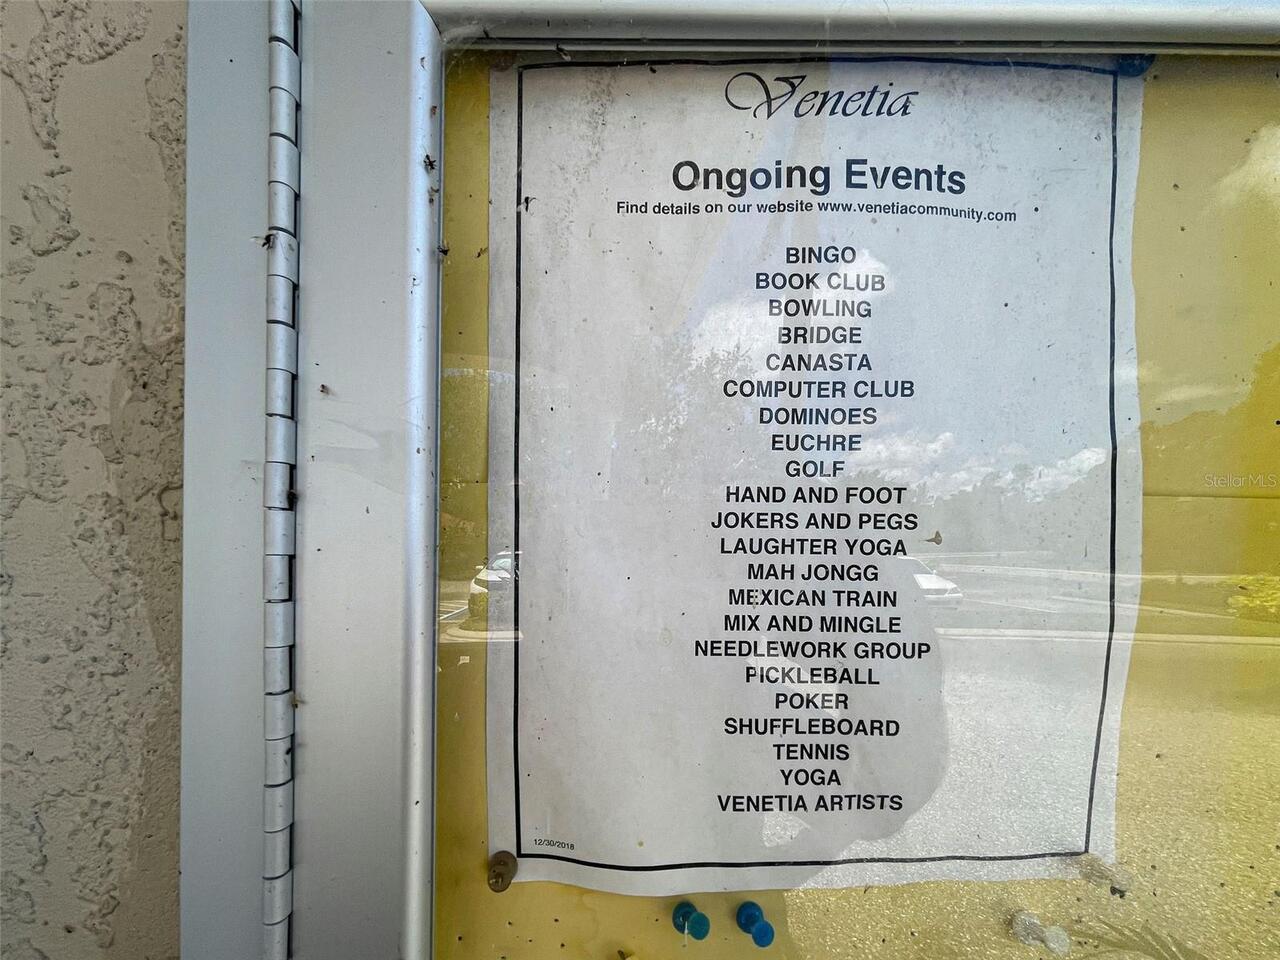 Venetia
Ongoing Events
Find details on our website www.venetiacommunity.com
BINGO
BOOK CLUB
BOWLING
BRIDGE
CANASTA
COMPUTER CLUB
DOMINOES
EUCHRE
GOLF
HAND AND FOOT
JOKERS AND PEGS
LAUGHTER YOGA
MAH JONGG
MEXICAN TRAIN
MIX AND MINGLE
NEEDLEWORK GROUP
PICKLEBALL
POKER
SHUFFLEBOARD
TENNIS
YOGA
VENETIA ARTISTS
12/30/2018
Stellar MLS